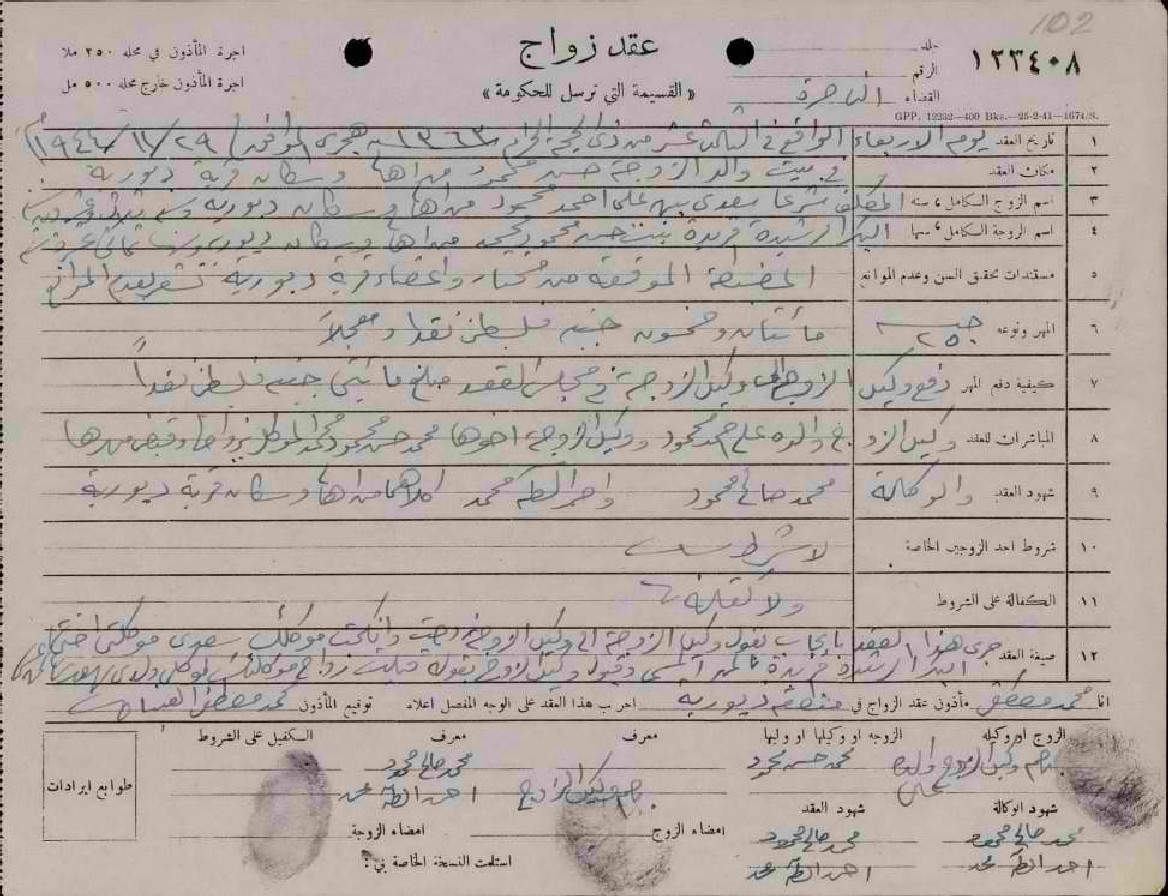 102
عقد زواج
« القسيمة التي ترسل للحكومة »
اجرة المأذون في محله ٢٥٠ ملا
اجرة المأذون خارج محله ٥٠٠ مل
جلد
الرقم
١٢٣٤٠٨
القضاء الناصرة
GPP. 12252—400 Bks.—25-2-41—1674/S.
١ تاريخ العقد يوم الاربعاء الواقع في الثالث عشر من ذي الحجة الحرام ١٣٦٣ هجري الموافق ٢٩/١١/١٩٤٤
٢ مكان العقد في بيت والد الزوجة حسن محمود من اهالي وسكان قرية دبورية
٣ اسم الزوج الكامل، سنه المكلف شرعا سعدي بن علي احمد محمود من اهالي وسكان دبورية
٤ اسم الزوجة الكامل، سنها البكر الرشيدة فريدة بنت حسن محمود محمد من اهالي وسكان دبورية
٥ مستندات تحقق السن وعدم الموانع المضبطة الموقعة من مختار واعضاء قرية دبورية تشعر بعدم الموانع
٦ المهر ونوعه ٢٥٠ جنيه مائتان وخمسون جنيه فلسطيني نقدا ومعجلا
٧ كيفية دفع المهر دفع وكيل الزوج الى وكيل الزوجة في مجلس العقد مبلغ مائتي جنيه فلسطيني نقداً
٨ المباشران للعقد وكيل الزوج والده علي احمد محمود ووكيل الزوجة اخوها محمد حسن محمود محمد الموكل بزواجها وقبض مهرها
٩ شهود العقد والوكالة محمد صالح محمود واحمد الطه محمد كلاهما من اهالي وسكان قرية دبورية
١٠ شروط احد الزوجين الخاصة لا شرط
١١ الكفالة على الشروط ولا كفالة
١٢ صيغة العقد جرى هذا العقد بايجاب بقول وكيل الزوجة الى وكيل الزوج زوجت وانكحت موكلك سعدي موكلتي اختي
البكر الرشيدة فريدة بالمهر المسمى وقبول وكيل الزوج بقوله قبلت زواج موكلتك لموكلي ولدي
انا محمد مصطفى مأذون عقد الزواج في منطقة دبورية اجريت هذا العقد على الوجه المفصل اعلاه توقيع المأذون محمد مصطفى
الزوج او وكيله
الزوجه او وكيلها او وليها
معرف
معرف
الكفيل على الشروط
بصم وكيل الزوج والده علي
محمد حسن محمود
محمد صالح محمود
احمد الطه محمد
طوابع ايرادات
بصم وكيل الزوج
شهود الوكالة
شهود العقد
محمد صالح محمود
محمد صالح محمود
امضاء الزوج
امضاء الزوجة
احمد الطه محمد
احمد الطه محمد
استلمت النسخة الخاصة بي: